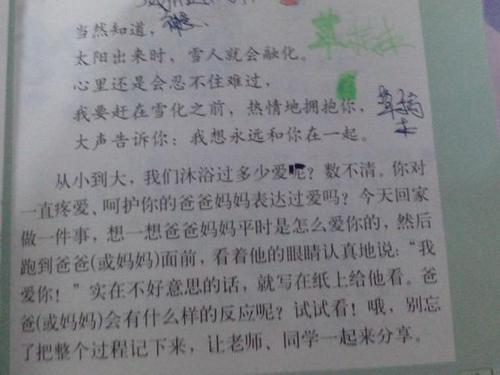 当然知道，
太阳出来时，雪人就会融化。
心里还是会忍不住难过，
我要赶在雪化之前，热情地拥抱你，
大声告诉你：我想永远和你在一起。
从小到大，我们沐浴过多少爱呢？数不清。你对
一直疼爱、呵护你的爸爸妈妈表达过爱吗？今天回家
做一件事，想一想爸爸妈妈平时是怎么爱你的，然后
跑到爸爸(或妈妈)面前，看着他的眼睛认真地说：“我
爱你！”实在不好意思的话，就写在纸上给他看。爸
爸(或妈妈)会有什么样的反应呢？试试看！哦，别忘
了把整个过程记下来，让老师、同学一起来分享。